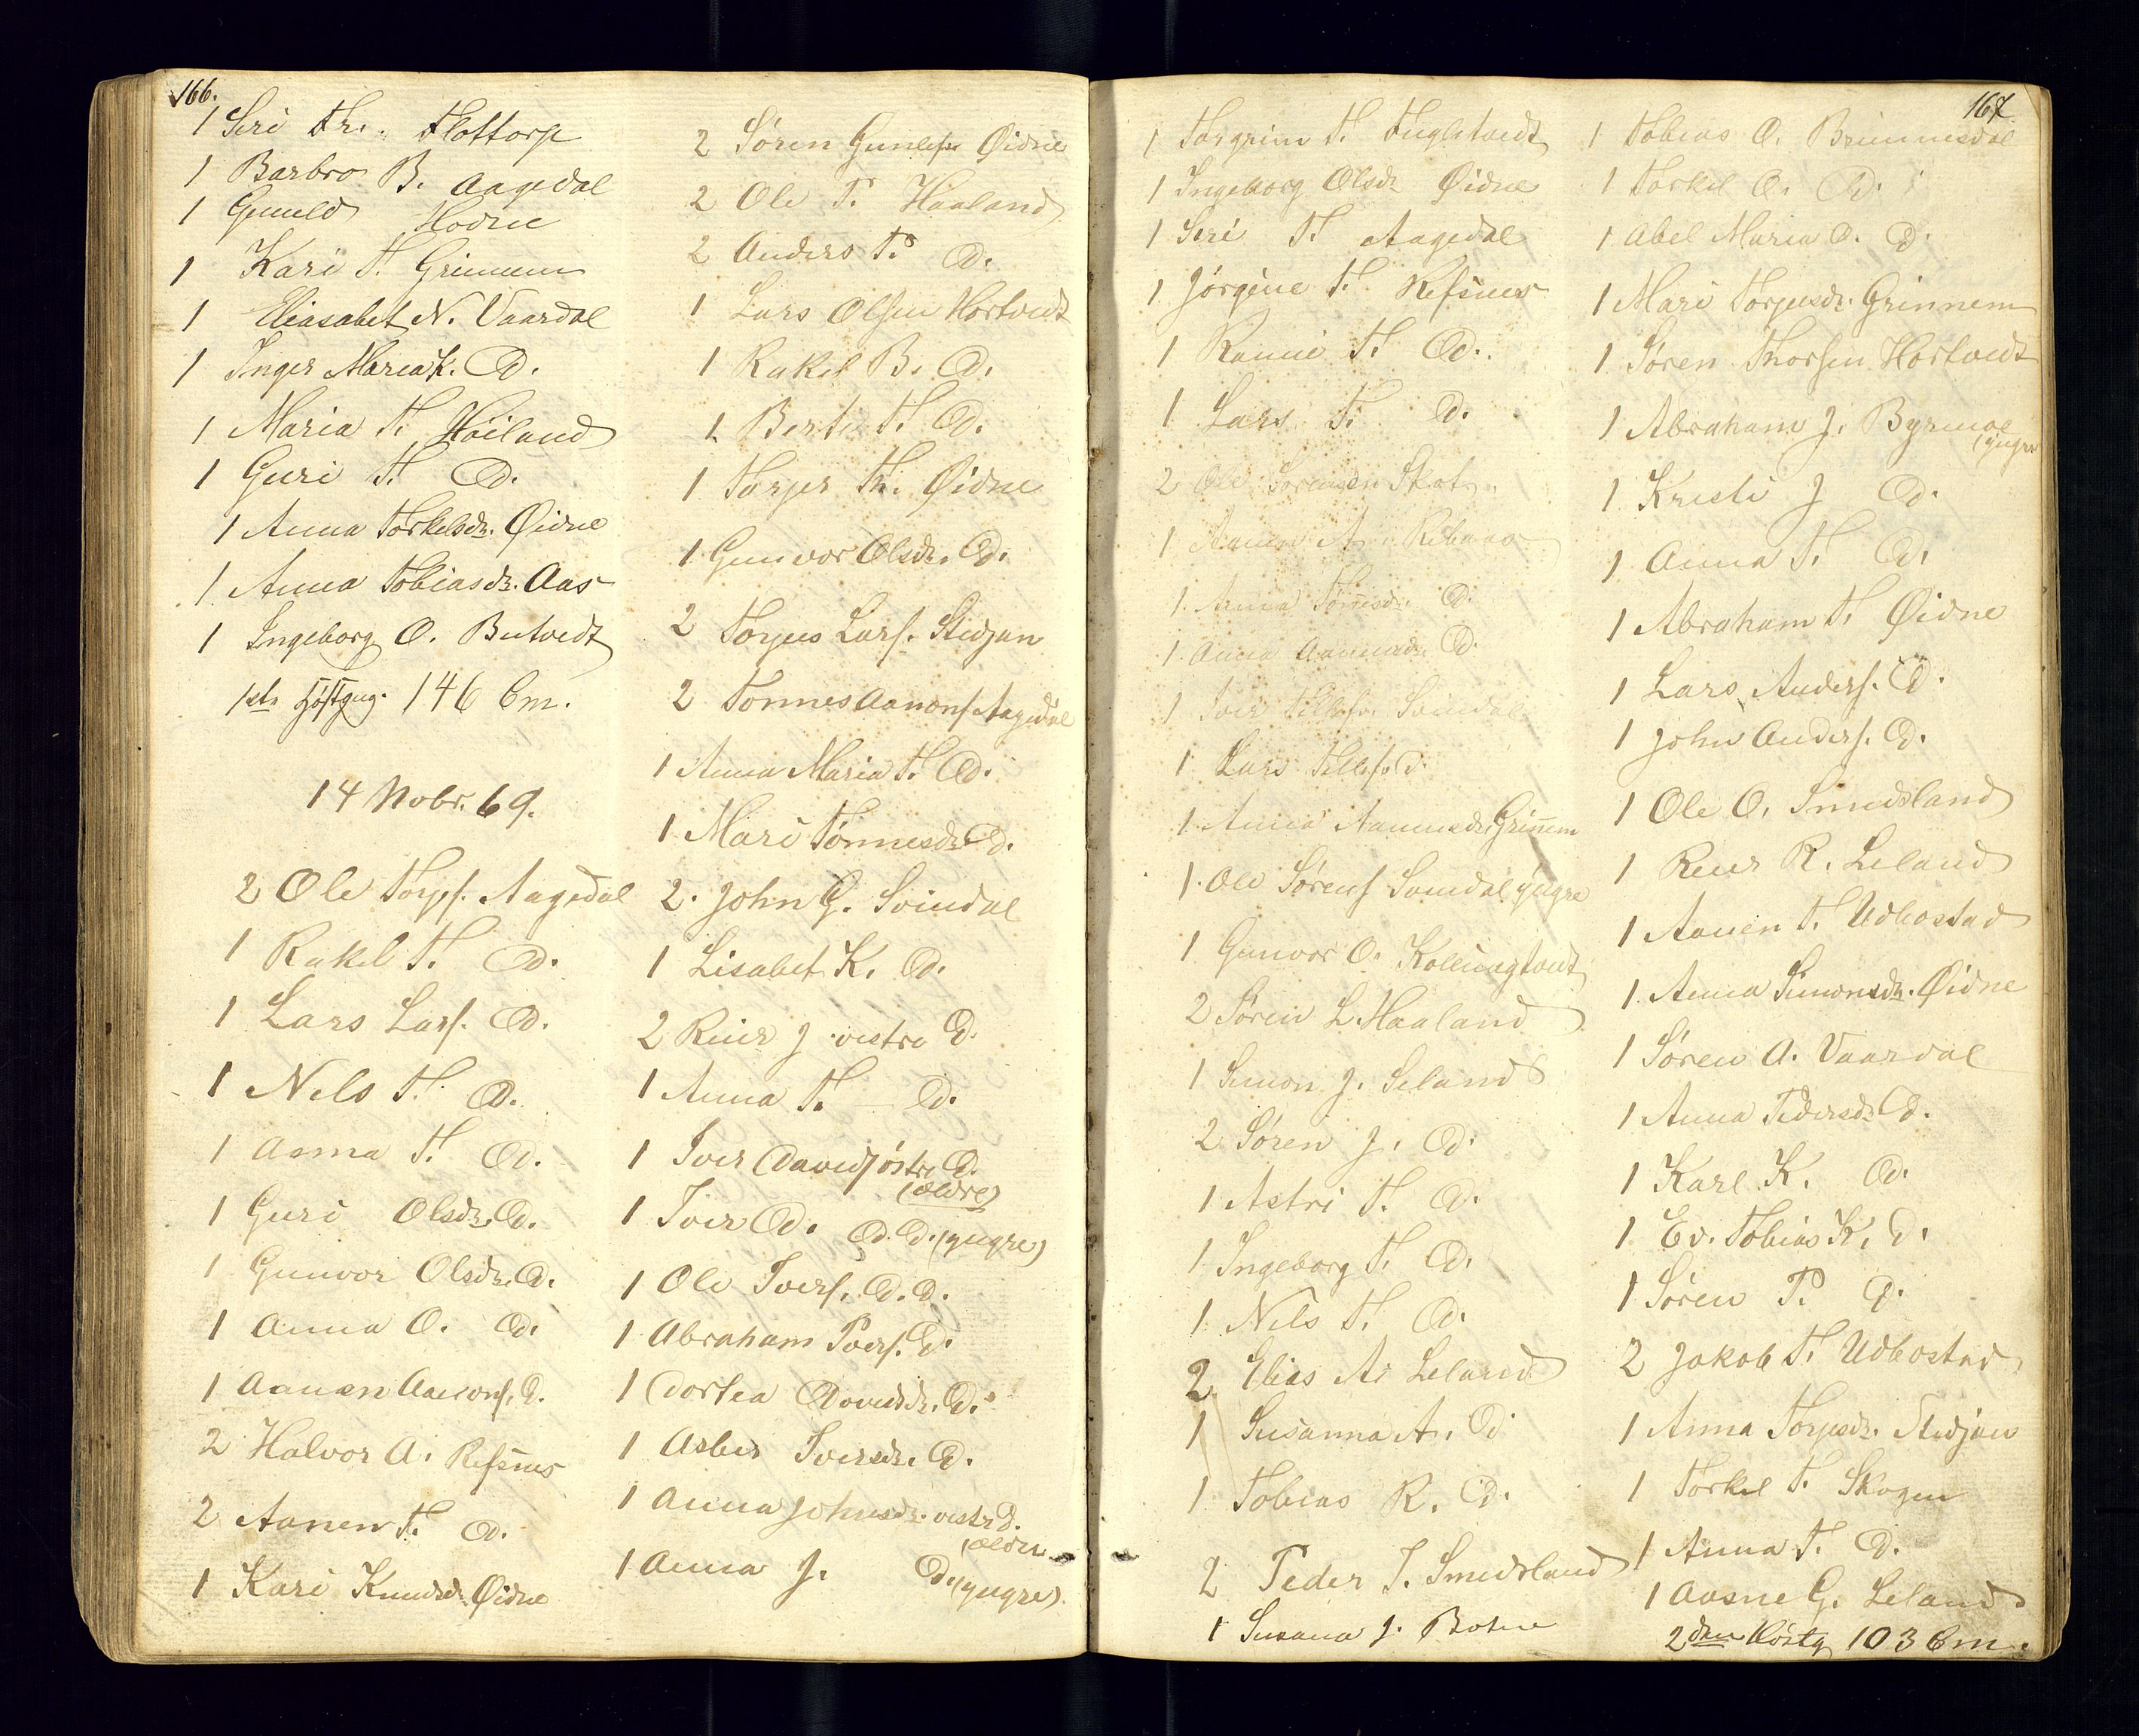 166.
1 Siri Th. Flottorp
1 Barbro B. Aagedal
1 Gunild Hodne
1 Kari T. Grimnem
1 Eliasabet N. Vaardal
1 Inger Maria K. D.
1 Maria T. Høiland
1 Guri T. D.
1 Anna Torkelsdr. Øidne
1 Anna Tobiasdr. Aas
1 Ingeborg O. Butvedt
1ste Høstgag. 146 Cm.
14 Nobr. 69.
2 Ole Torjs. Aagedal
1 Rakel T. D.
1 Lars Lars. D.
1 Nils T. D.
1 Asma T. D.
1 Guri Olsdr. D.
1 Gunvor Olsdr. D.
1 Anna O. D.
1 Aanen Aanons. D.
2 Halvor A. Refsnes
2 Aanen T. D.
1 Kari Knudsdr. Øidne
2 Søren Gunlefs Øidne
2 Ole P. Haaland
2 Anders P. D.
1 Lars Olsen Hortvedt
1 Rakel B. D.
1 Berte T. D.
1 Torjer Th. Øidne
1 Gunvor Olsdr. D.
2 Torjus Lars. Stedjan
2 Tønnes Aanons Aagedal
1 Anna Maria T. D.
1 Mari Tønnesdr. D.
2. John G. Svindal
1 Lisabet K. D.
2 Reier J. vestre D.
1 Anna T. D.
1 Iver Davids østre D.
(ældre)
1 Iver D. D. D. (yngre)
1 Ole Ivers. D. D.
1 Abraham Ivers. D.
1 Dortea Davidsdr. D.
1 Asber Iversdr. D.
1 Anna Johnsdr. vestr D.
(ældre
1 Anna J. D. (yngre)
167
1 Torgrim T. Fuglstvedt
1 Ingeborg Olsdr Øidne
1 Siri T. Aagedal
1 Jørgine T. Refsnes
1 Ranni T. D.
1 Lars T. D.
2 Ole Sørensen Skot
1 Aanen A. Ribaas
1. Anna Tønnesdr. D.
1. Anna Aanensdr. D.
1 Iver Tellefs. Svindal
1 Lars Tellefs. D.
1. Anna Aanensdr. Grimnem
1. Ole Sørens Svindal yngre
1 Gunvor O. Kollungtvedt
2 Søren L. Haaland
1 Simon J. Seland
2 Søren J. D.
1 Astri T. D.
1 Ingeborg T. D.
1 Nils T. D.
2 Elias A. Leland
1 Susanna A. D.
1 Tobias R. D.
2 Peder T. Smedsland
1 Susana J. Botne
1 Tobias O. Brimmesdal
1 Torkel O. D.
1 Abel Maria O. D.
1 Mari Torjusdr. Grinnem
1 Søren Thorsen Hortvedt
1 Abraham J. Byrmoe
(yngre
1 Kristi J D.
1 Anna T. D.
1 Abraham T. Øidne
1 Lars Anders. D.
1 John Anders. D.
1 Ole O. Smedsland
1 Reier R. Leland
1 Aanen T. Udbostad
1 Anna Simonsdr. Øidne
1 Søren A. Vaardal
1 Anna Pedersdr. D.
1 Karl K. D.
1 Ed. Tobias K. D.
1 Søren P. D.
2 Jakob T. Udbostad
1 Anna Torjusdr. Stedjan
1 Torkel T. Skogen
1 Anna T. D.
1 Aasne G. Leland
2den Høstg 103 Cm.